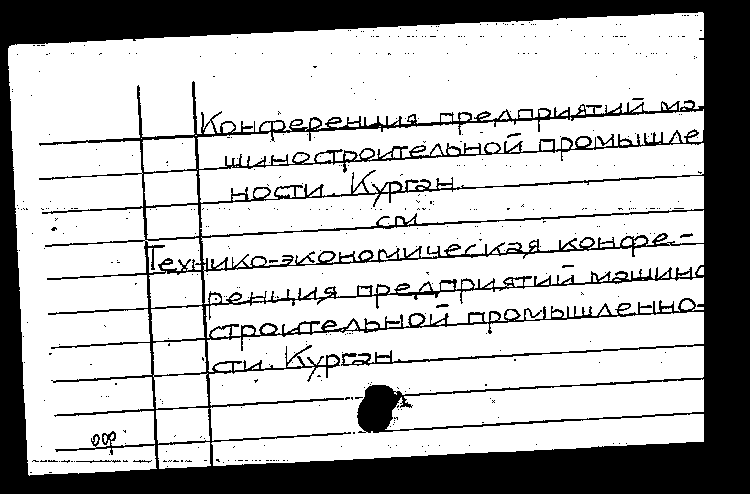 Конференция предприятий ма-
шиностроительной промышлен
ности. Курган.
см
Технико-экономическая конфе-
ренция предприятий машино
строительной промышленно-
сти. Курган.